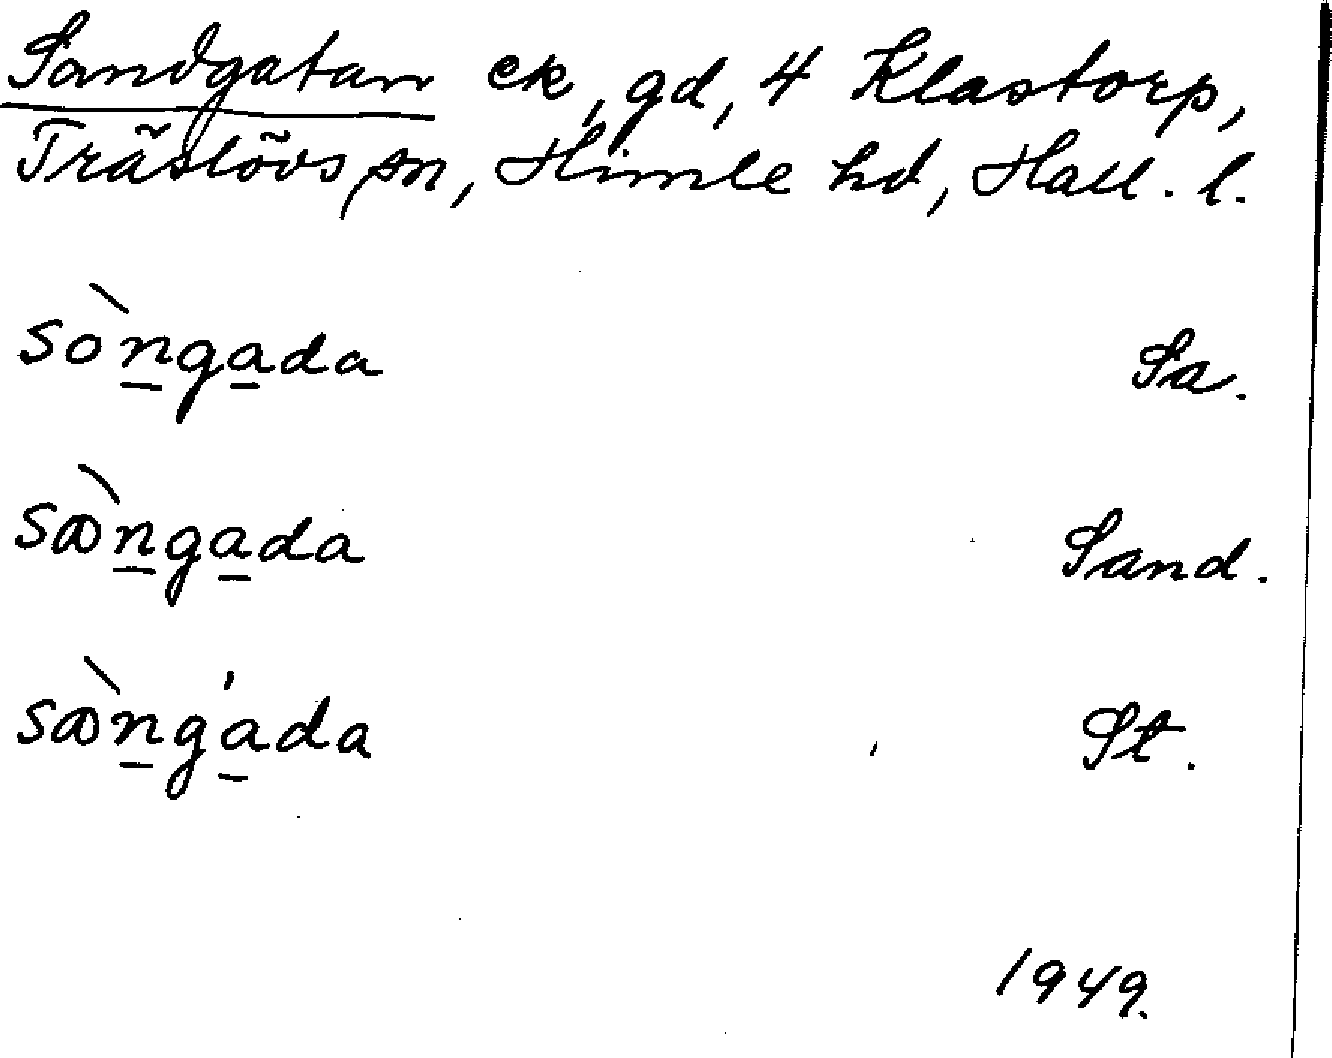 Sandgatan ek, gd, 4 Klastorp,
Träslövs sn, Himle hd, Hall. l.
sòngada Sa.
sàngada Sand.
sàngáda St.
1949.